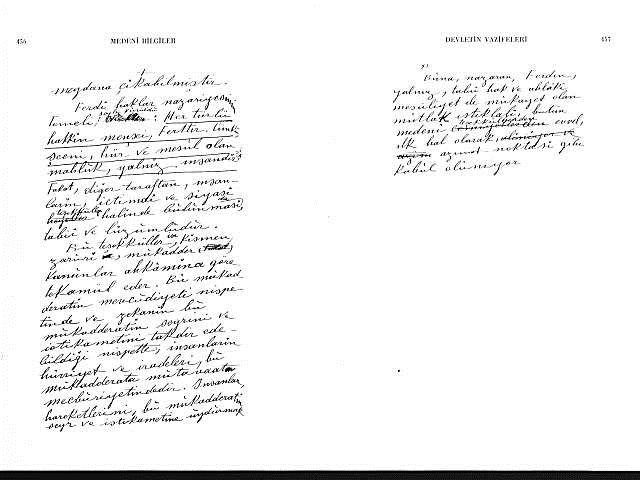 456
MEDENİ BİLGİLER
meydana çıkabilmiştir.
Ferdî haklar nazariyesinin
temeli, şudur: Her türlü
hakkın menşei, Ferttir. Çünkü
şeeni, hür ve mes'ul olan
mahlûk, yalnız insandır.
Fakat, diğer taraftan, insan-
ların, içtimaî ve siyasî
teşekküller halinde bulunması,
tabiî ve lüzumludur.
Bu teşekküller, kısmen
zarurî ve, mukadder
kanunlar ahkâmına göre
tekâmül eder. Bu mukad-
deratın mevcudiyeti nispe-
tinde ve zekânın bu
mukadderatın seyrini ve
istikametini takdir ede-
bildiği nispette, insanların
hürriyet ve iradeleri, bu
mukadderata mutavaata
mecburiyetindedir. İnsanlar,
hareketlerini, bu mukadderatın
seyr ve istikametine uydurmak
DEVLETİN VAZİFELERİ
457
Buna, nazaran, Ferdin,
yalnız, tabiî hak ve ahlâkî
mes'uliyet de mukayyet olan
mutlak istiklâli, bütün
medenî teşekküllerden evvel,
ilk hal olarak
azimet noktası gibi
kabul olunuyor